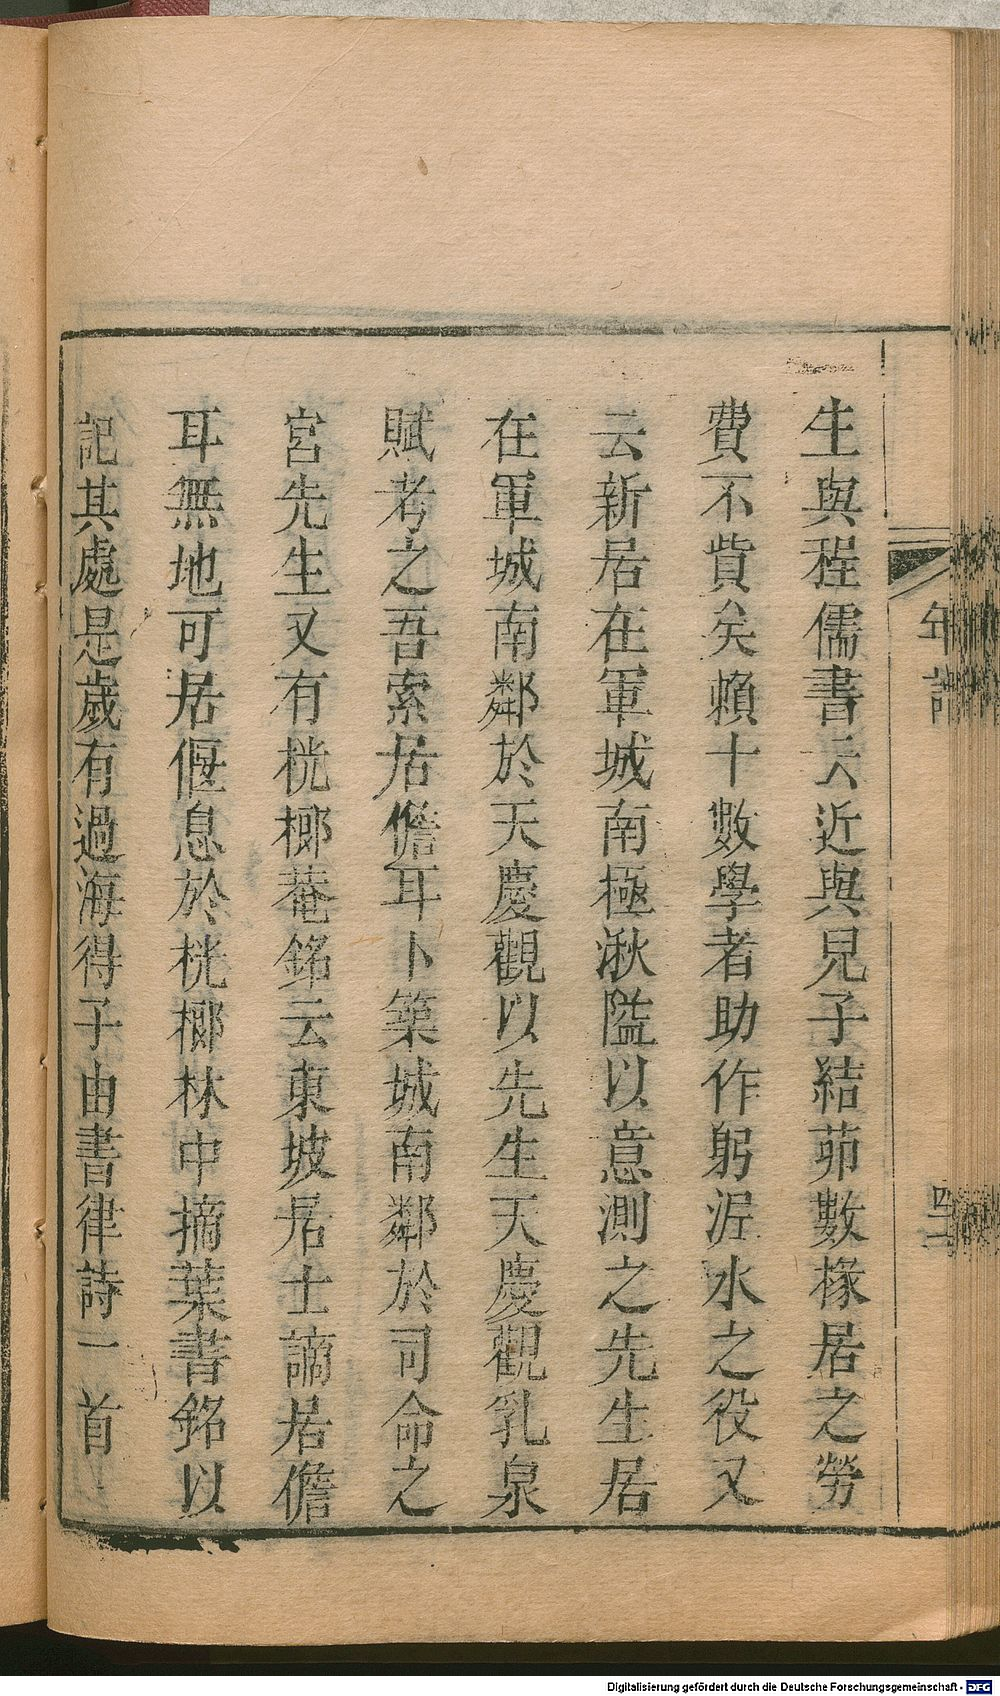 生與程儒書云近與兒子結茆數椽居之勞
費不貲矣賴十數學者助作躬泥水之役又
云新居在軍城南極湫隘以意測之先生居
在軍城南鄰於天慶觀以先生天慶觀乳泉
賦考之吾索居儋耳卜築城南鄰於司命之
宮先生又有桄榔菴銘云東坡居士謫居儋
耳無地可居偃息於桄榔林中摘葉書銘以
記其處是歲有過海得子由書律詩一首
年譜
Digitalisierung gefördert durch die Deutsche Forschungsgemeinschaft - DFG